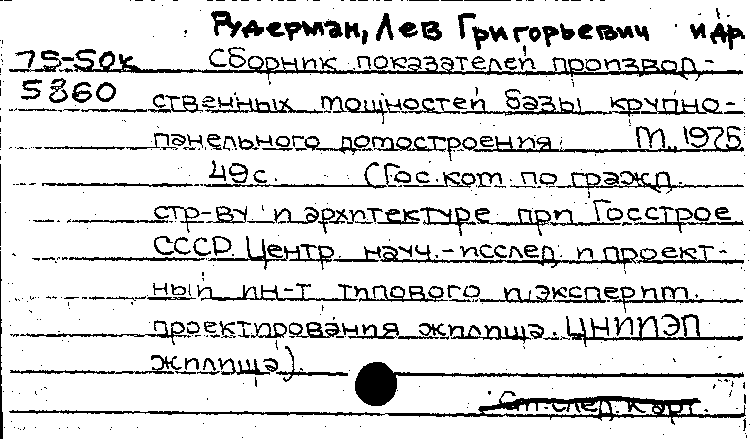 Рудерман, Лев Григорьевич и др
75-50к Сборник показателей производ-
5860 ственных мощностей базы крупно-
панельного домостроения. М., 1975
49с. (Гос. ком. по гражд.
стр-ву и архитектуре при Госстрое
СССР. Центр. науч.-исслед. и проект-
ный ин-т типового и эксперим.
проектирования жилища. ЦНИИЭП
жилища).
См. след. карт.